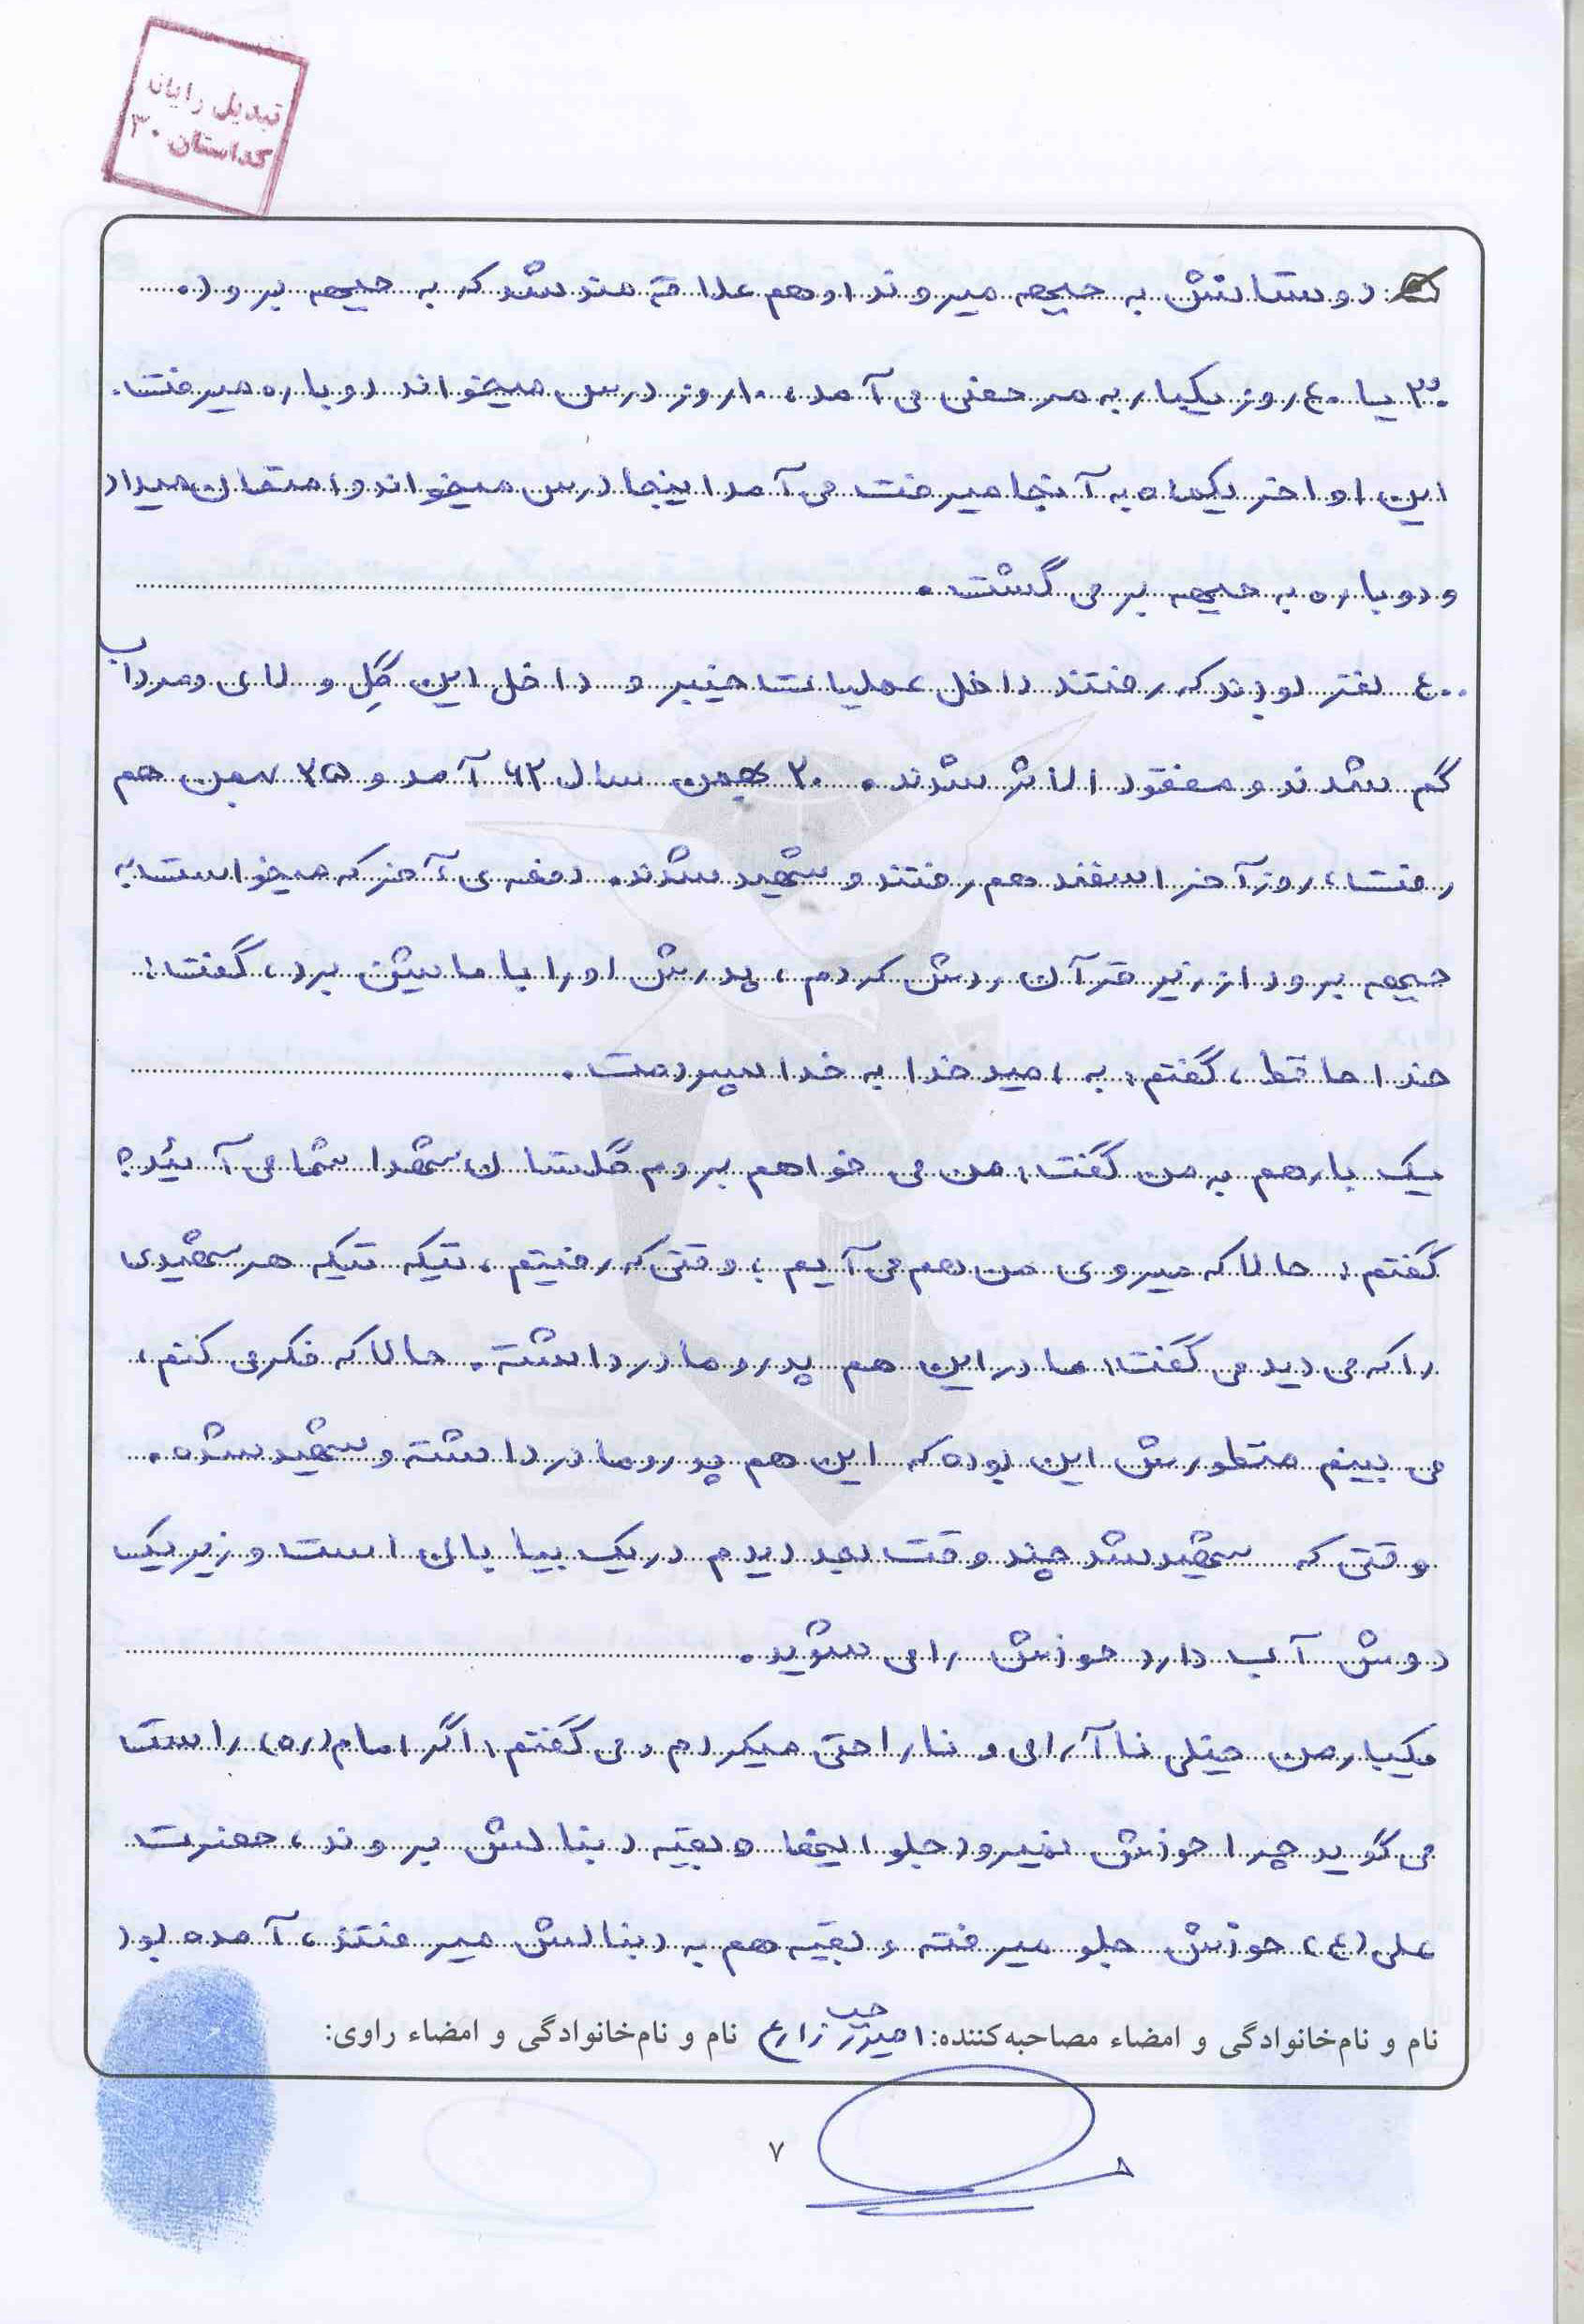 تبدیل رایانه
کداستان ۳۰
دوستانش به جبهه میروند او هم علاقه مند شد که به جبهه برود.
۳۰ یا ۴۰ روز یکبار به مرخصی می آمد، ۱۰ روز درس میخواند دوباره میرفت.
این اواخر یکماه به آنجا میرفت می آمد اینجا درس میخواند و امتحان میداد
و دوباره به جبهه بر می گشت.
۴۰۰ نفر بودند که رفتند داخل عملیات خیبر و داخل این گِل و لای و مرداب
گم شدند و مفقود الاثر شدند. ۲۰ بهمن سال ۶۲ آمد و ۲۵ بهمن هم
رفت، روز آخر اسفند هم رفتند و شهید شدند. دفعه ی آخر که میخواست به
جبهه برود از زیر قرآن ردش کردم، پدرش او را با ماشین برد، گفت:
خدا حافظ، گفتم: به امید خدا به خدا سپردمت.
یک بار هم به من گفت: من می خواهم بروم گلستان شهدا شما می آئید؟
گفتم: حالا که میروی من هم می آیم؛ وقتی که رفتیم، تیکه تیکه هر شهیدی
را که می دید می گفت: مادر این هم پدر و مادر داشته. حالا که فکر می کنم،
می بینم منظورش این بوده که این هم پدر و مادر داشته و شهید شده.
وقتی که شهید شد چند وقت بعد دیدم در یک بیابان است و زیر یک
دوش آب دارد خودش را می شوید.
یکبار من خیلی نا آرامی و ناراحتی میکردم و می گفتم: اگر امام (ره) راست
می گوید چرا خودش نمیرود جلو اینها و بقیه دنبالش بروند، حضرت
علی (ع) خودش جلو میرفته و بقیه هم به دنبالش میرفتند، آمده بود
نام و نام‌خانوادگی و امضاء مصاحبه‌کننده: زارع نام و نام‌خانوادگی و امضاء راوی:
۷